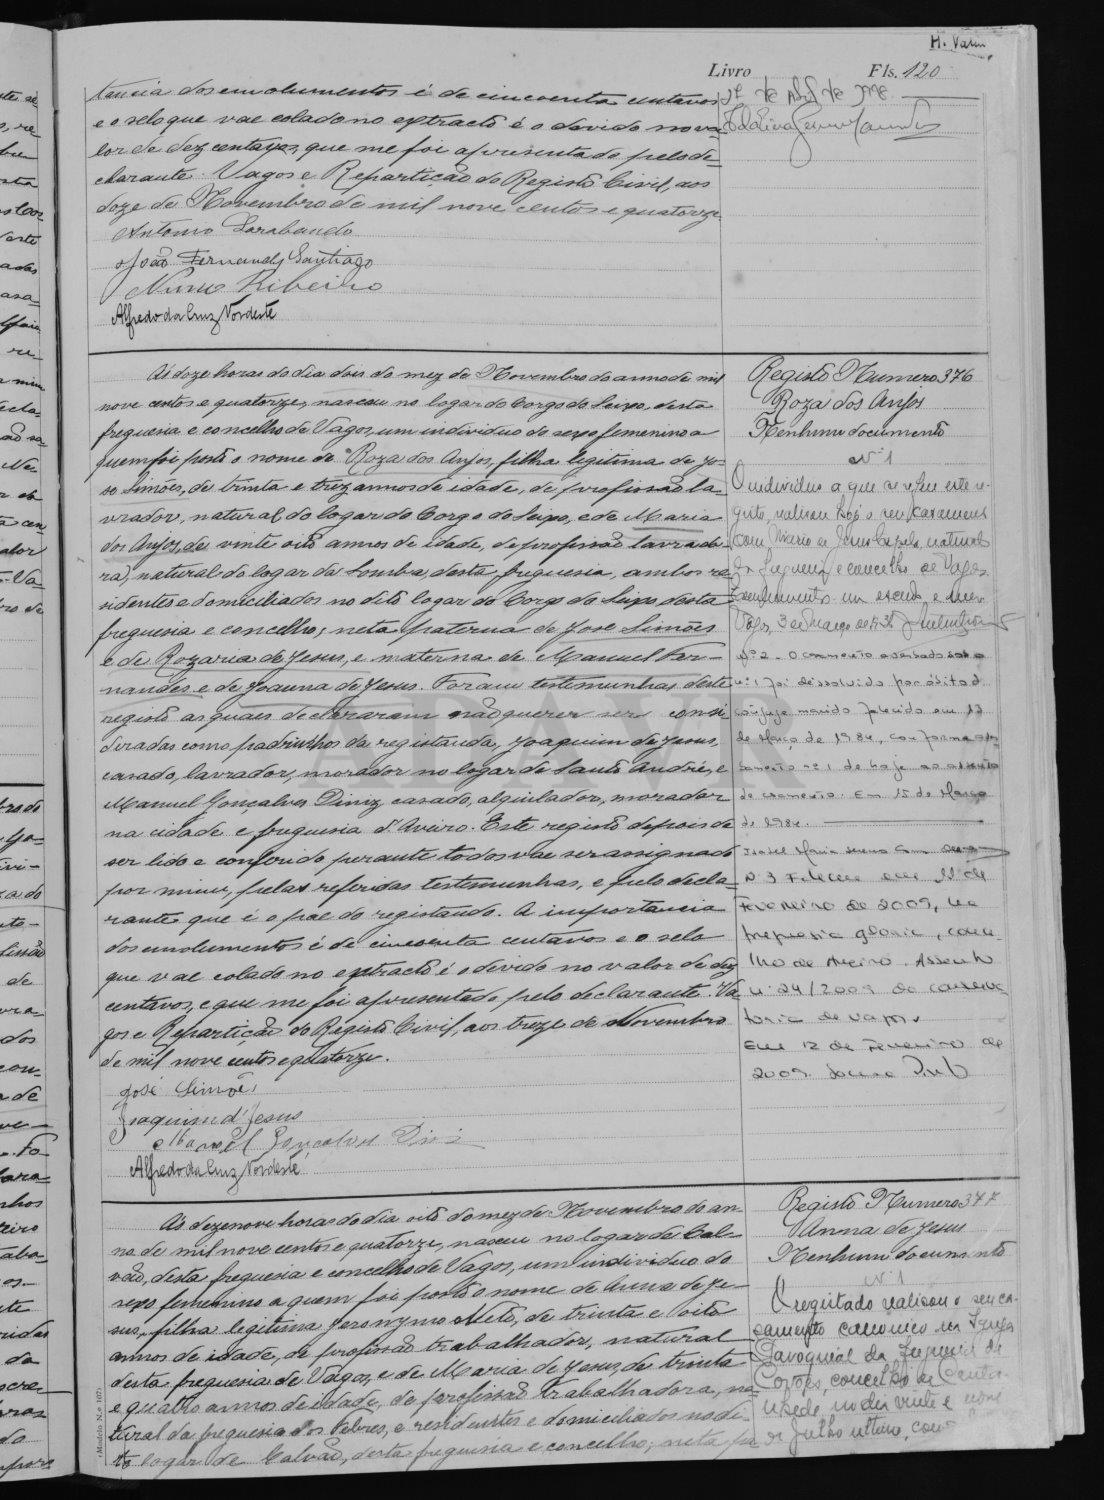 H. Vasm
Livro Fls. 120
tancia dos emolumentos é de cincoenta centavos
e o selo que vae colado no extracto é o devido no va-
lor de dez centavos, que me foi apresentado pelo de-
clarante. Vagos e Repartição do Registo Civil, aos
doze de Novembro de mil nove centos e quatorze
Antonio Sarabando
João Fernandes Santiago
Nunes Ribeiro
Alfredo da Cruz Nordeste
Ás doze horas do dia dois do mez de Novembro do anno de mil
nove centos e quatorze, nasceu no logar do Corgo do Seixo, desta
freguesia e concelho de Vagos, um individuo do sexo femenino a
quem foi posto o nome de Roza dos Anjos, filha legitima de Jo-
se Simões, de trinta e trez annos de idade, de profissão la-
vrador, natural do logar do Corgo do Seixo, e de Maria
dos Anjos, de vinte oito annos de idade, de profissão lavrado-
ra, natural do logar da Lomba, desta freguesia, ambos re-
sidentes e domiciliados no dito logar do Corgo do Seixo desta
freguesia e concelho; neta paterna de Jose Simões
e de Rozaria de Jesus, e materna de Manuel Fer-
nandes e de Joanna de Jesus. Foram testimunhas deste
registo as quaes declararam não querer ser consi
deradas como padrinhos da registanda, Joaquim de Jesus,
casado, lavrador, morador no logar de Santo André, e
Manuel Gonçalves Diniz casado, alquilador, morador
na cidade e freguesia d'Aveiro. Este registo depois de
ser lido e conferido perante todos vae ser assignado
por mim, pelas referidas testimunhas, e pelo decla-
rante que é o pae do registando. A importancia
dos emolumentos é de cincoenta centavos e o selo
que vae colado no extracto é o devido no valor de dez
centavos, e que me foi apresentado pelo declarante. Va-
gos e Repartição do Registo Civil, aos treze de Novembro
de mil nove centos e quatorze.
José Simões
Joaquim d'Jesus
Manoel Gonçalves Diniz
Alfredo da Cruz Nordeste
Registo Numero 376
Roza dos Anjos
Nenhum documento
Nº 1
O individuo a que se refere este re-
gisto, realisou hoje o seu casamento
com Mario de Jesus, natural
da freguesia e concelho de Vagos.
um escudo e
Vagos, 3 de Março de
Nº 2 - O casamento averbado sob o
nº 1 foi dissolvido por óbito do
cônjuge marido falecido em 13
de Março de 1984, conforme
nº 1 de hoje ao assento
de casamento. Em 15 de Março
de 1984.
Isabel Maria
Nº 3 Faleceu em 11 de
Fevereiro de 2009, na
freguesia Glória, conce-
lho de Aveiro. Assento
nº 24/2009 da Conserva
toria de Vagos.
Em 12 de Fevereiro de
2009.
Ás dezenove horas do dia oito do mez de Novembro do an-
no de mil nove centos e quatorze, nasceu no logar de Cal-
vão, desta freguesia e concelho de Vagos, um individuo do
sexo femenino a quem foi posto o nome de Anna de Je-
sus, filha legitima Jeronymo Neto, de trinta e oito
annos de idade, de profissão trabalhador, natural
desta freguesia de Vagos, e de Maria de Jesus, de trinta
e quatro annos de idade, de profissão trabalhadora, na-
tural da freguesia dos Febres, e residentes e domiciliados no di-
to logar de Calvão, desta freguesia e concelho; neta pa
Registo Numero 377
Anna de Jesus
Nenhum documento
Nº 1
O registado realisou o seu ca-
samento canonico na Igreja
Paroquial da freguesia de
concelho de Canta-
nhede, no dia vinte e nove
de Julho ultimo, com
(Modelo N.º 107)